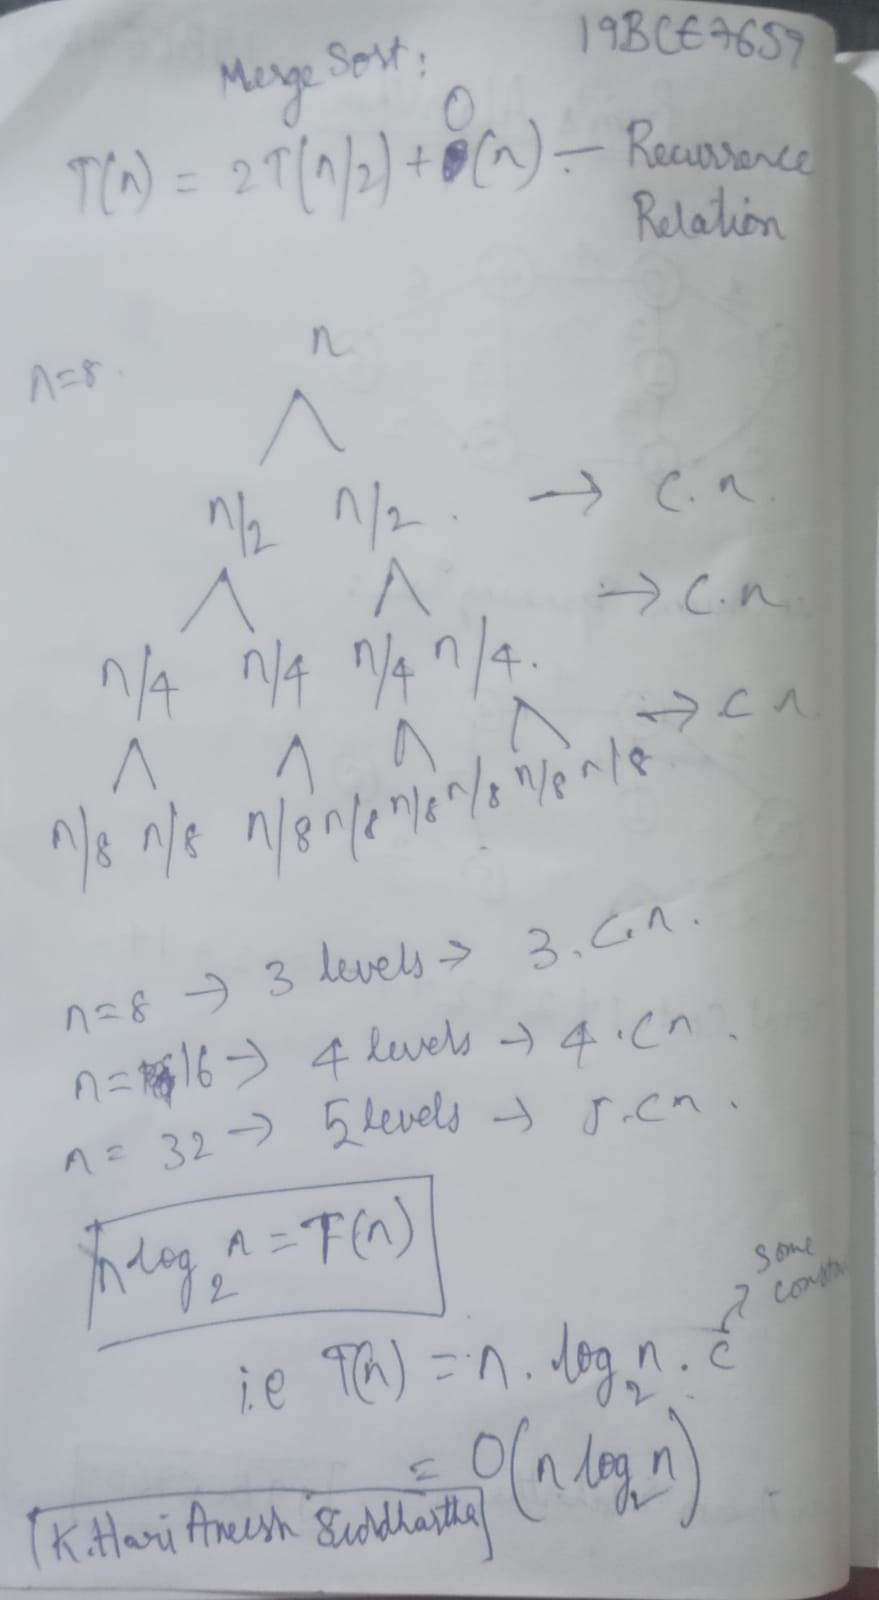 19BCE7659
Merge Sort:
T(n) = 2T(n/2) + O(n) — Recurrence
Relation
n=8
n
n/2 n/2 → c.n.
→ c.n
n/4 n/4 n/4 n/4.
→ c n
n/8 n/8 n/8 n/8 n/8 n/8 n/8 n/8
n=8 → 3 levels → 3.c.n.
n=16 → 4 levels → 4.cn.
n= 32 → 5 levels → 5.cn.
n log₂ n = T(n)
some
i.e T(n) = n. log₂ n. c
= O(n log₂ n)
K.Hari Aneesh Siddhartha